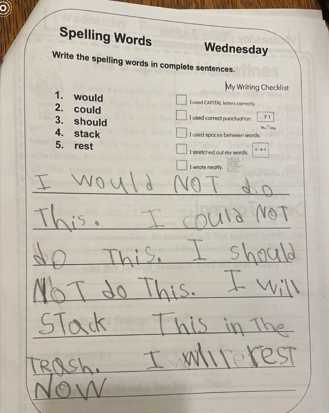 Spelling Words
Wednesday
Write the spelling words in complete sentences.
My Writing Checklist
1. would
2. could
3. should
4. stack
5. rest
I used CAPITAL letters correctly.
I used correct punctuation.
I used spaces between words.
I stretched out my words.
I wrote neatly.
I would NOT do
This. I could NOT
do This. I should
NOT do This. I will
STack This in The
TRaSh. I will rest
NOW